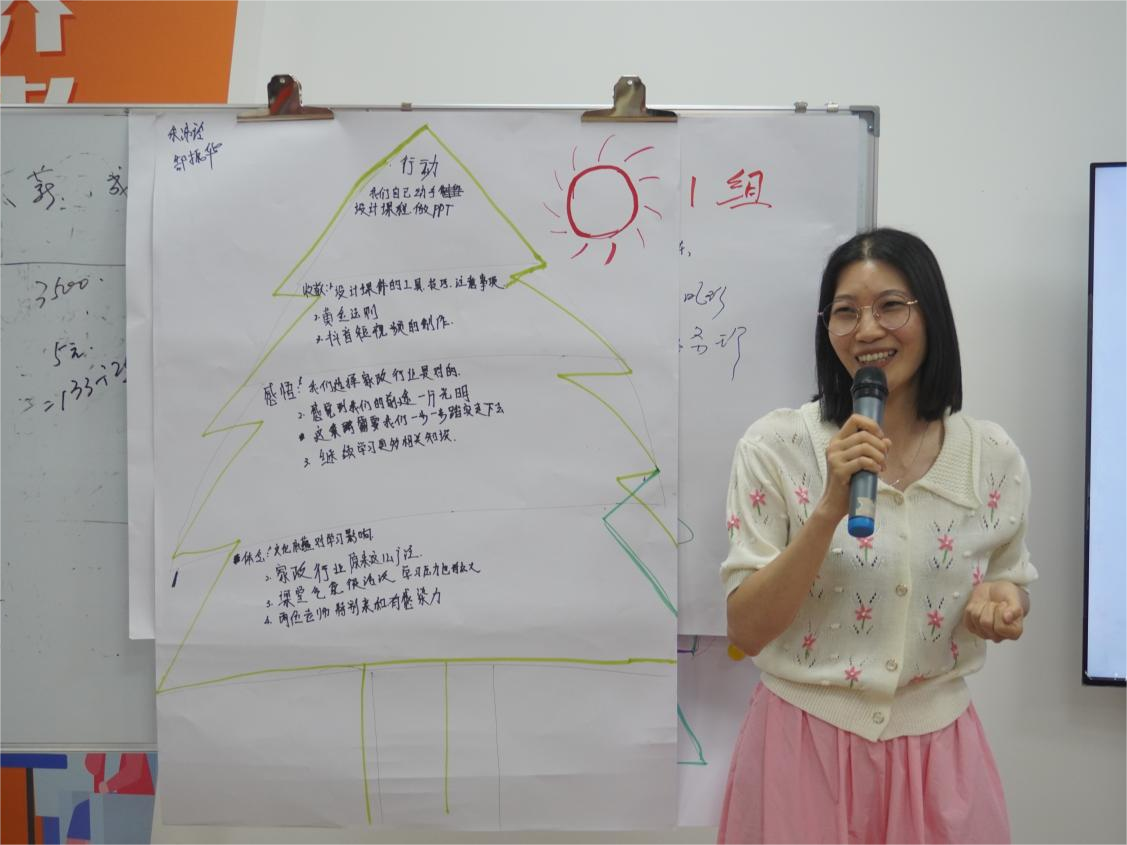 行动
我们自己动手
设计课程.做PPT
收获:1.设计课件的工具.技巧.注意事项
2.黄金法则
3.抖音短视频的制作.
感悟:1.我们选择家政行业是对的.
2.感觉到我们的前途一片光明
这条路需要我们一步一步踏实走下去
3.继续学习更多相关知识.
体会:1.文化底蕴对学习影响.
2.家政行业原来这么广泛.
3.课堂气氛很活泼
4.两位老师特别亲和有感染力
1组
3500.
5元.